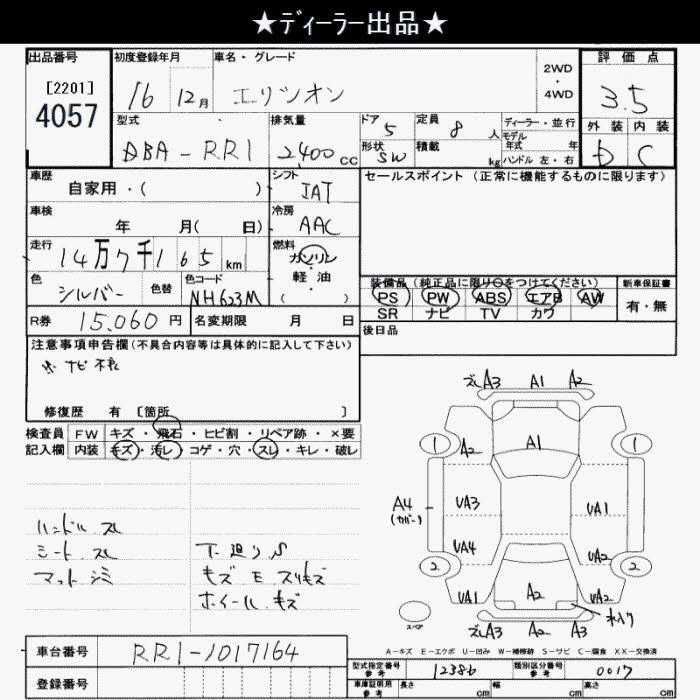 ★ディーラー出品★
出品番号 初度登録年月 車名・グレード 2WD ・ 4WD 評価点
[2201] 4057 16 12月 エリシオン 3.5
型式 排気量 ドア 5 定員 8人 ディーラー・並行 外装 内装
DBA-RR1 2,400cc 形状 SW 積載 kg モデル年式 年 ハンドル 左・右 D C
車歴 自家用・( ) シフト IAT セールスポイント(正常に機能するものに限ります)
車検 年 月( 日) 冷房 AAC
走行 14万7千165km 燃料 ガソリン・軽油・( )
色 シルバー 色替 色コード NH623M
装備品(純正品に限り○をつけてください) 新車保証書
PS PW ABS エアB AW 有・無
SR ナビ TV カワ
R券 15,060円 名変期限 月 日 後日品
注意事項申告欄(不具合内容等は具体的に記入して下さい)
※ ナビ 不良
修復歴 有 [箇所 ]
検査員 FW キズ・飛石・ヒビ割・リペア跡・×要
記入欄 内装 キズ・汚レ・コゲ・穴・スレ・キレ・破レ
ハンドル スレ
シート スレ 下廻り S
マット シミ キズ E スリキズ
ホイール キズ
ズレA3 A1 A2
1 A2 A1 1
A4 (カバー) UA3 UA1
UA4 UA2
2 UA1 A2 UA2 2
スペア ズレA3 A2 A3
A-キズ E-エクボ U-凹み W-補修跡 S-サビ C-腐食 XX-交換済
車台番号 RR1-1017164
型式指定番号 参考 12386 類別区分番号 参考 0017
登録番号 車庫証明用 参考 長さ cm 幅 cm 高さ cm